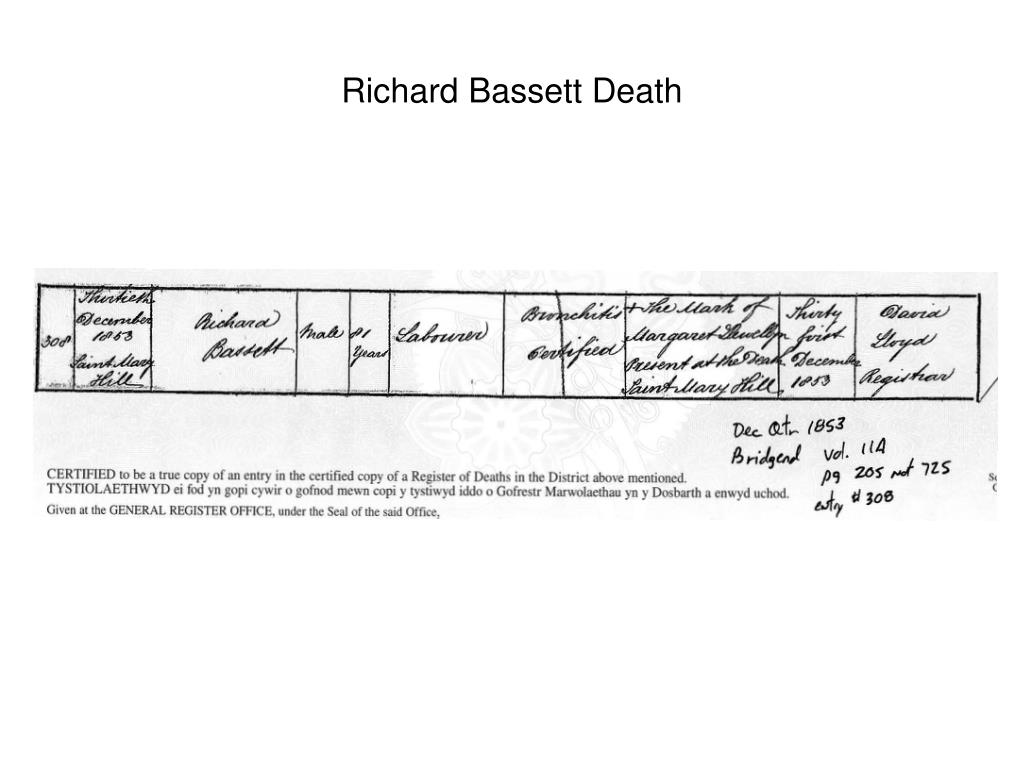 Richard Bassett Death
308
Thirtieth
December
1853
Saint Mary
Hill
Richard
Bassett
Male
81
Years
Labourer
Bronchitis
Certified
+ The Mark of
Margaret Llewellyn
Present at the Death
Saint Mary Hill
Thirty
first
December
1853
David
Lloyd
Registrar
Dec Qtr 1853
Bridgend vol. 11A
pg 205 not 725
entry # 308
CERTIFIED to be a true copy of an entry in the certified copy of a Register of Deaths in the District above mentioned.
TYSTIOLAETHWYD ei fod yn gopi cywir o gofnod mewn copi y tystiwyd iddo o Gofrestr Marwolaethau yn y Dosbarth a enwyd uchod.
Given at the GENERAL REGISTER OFFICE, under the Seal of the said Office,